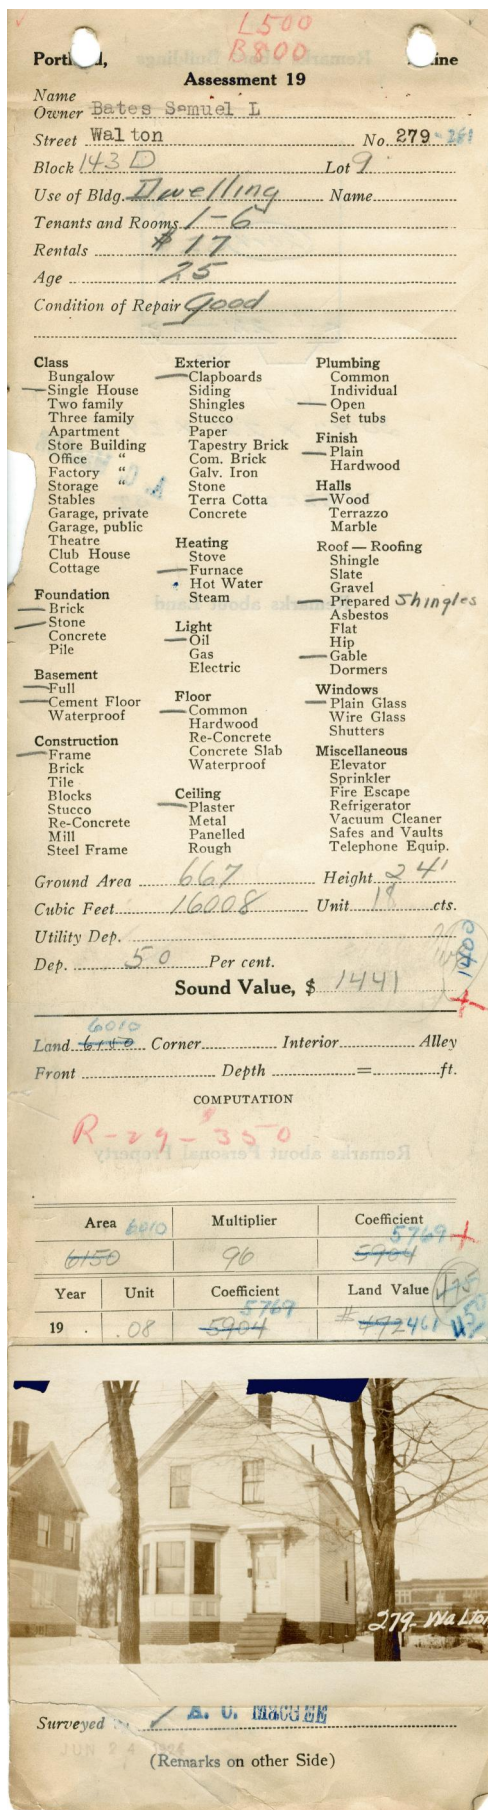 L500
B800
Portland, Maine
Assessment 19
Name
Owner Bates Samuel L
Street Walton No. 279-281
Block 143 D Lot 9
Use of Bldg. Dwelling Name
Tenants and Rooms 1-6
Rentals $17
Age 25
Condition of Repair Good
Class
Bungalow
Single House
Two family
Three family
Apartment
Store Building
Office "
Factory "
Storage "
Stables
Garage, private
Garage, public
Theatre
Club House
Cottage
Foundation
Brick
Stone
Concrete
Pile
Basement
Full
Cement Floor
Waterproof
Construction
Frame
Brick
Tile
Blocks
Stucco
Re-Concrete
Mill
Steel Frame
Exterior
Clapboards
Siding
Shingles
Stucco
Paper
Tapestry Brick
Com. Brick
Galv. Iron
Stone
Terra Cotta
Concrete
Heating
Stove
Furnace
Hot Water
Steam
Light
Oil
Gas
Electric
Floor
Common
Hardwood
Re-Concrete
Concrete Slab
Waterproof
Ceiling
Plaster
Metal
Panelled
Rough
Plumbing
Common
Individual
Open
Set tubs
Finish
Plain
Hardwood
Halls
Wood
Terrazzo
Marble
Roof — Roofing
Shingle
Slate
Gravel
Prepared Shingles
Asbestos
Flat
Hip
Gable
Dormers
Windows
Plain Glass
Wire Glass
Shutters
Miscellaneous
Elevator
Sprinkler
Fire Escape
Refrigerator
Vacuum Cleaner
Safes and Vaults
Telephone Equip.
Ground Area 667 Height 24'
Cubic Feet 16008 Unit 18 cts.
Utility Dep.
Dep. 50 Per cent.
1400
Sound Value, $ 1441
6010
Land 6150 Corner Interior Alley
Front Depth = ft.
COMPUTATION
R-29-$350
Area 6010 Multiplier Coefficient 5769
6150 96 5904
Year Unit Coefficient Land Value 475
5769
19 .08 5904 $492 461 450
279-Walton
Surveyed by A. C. MacGEE
JUN 24
(Remarks on other Side)